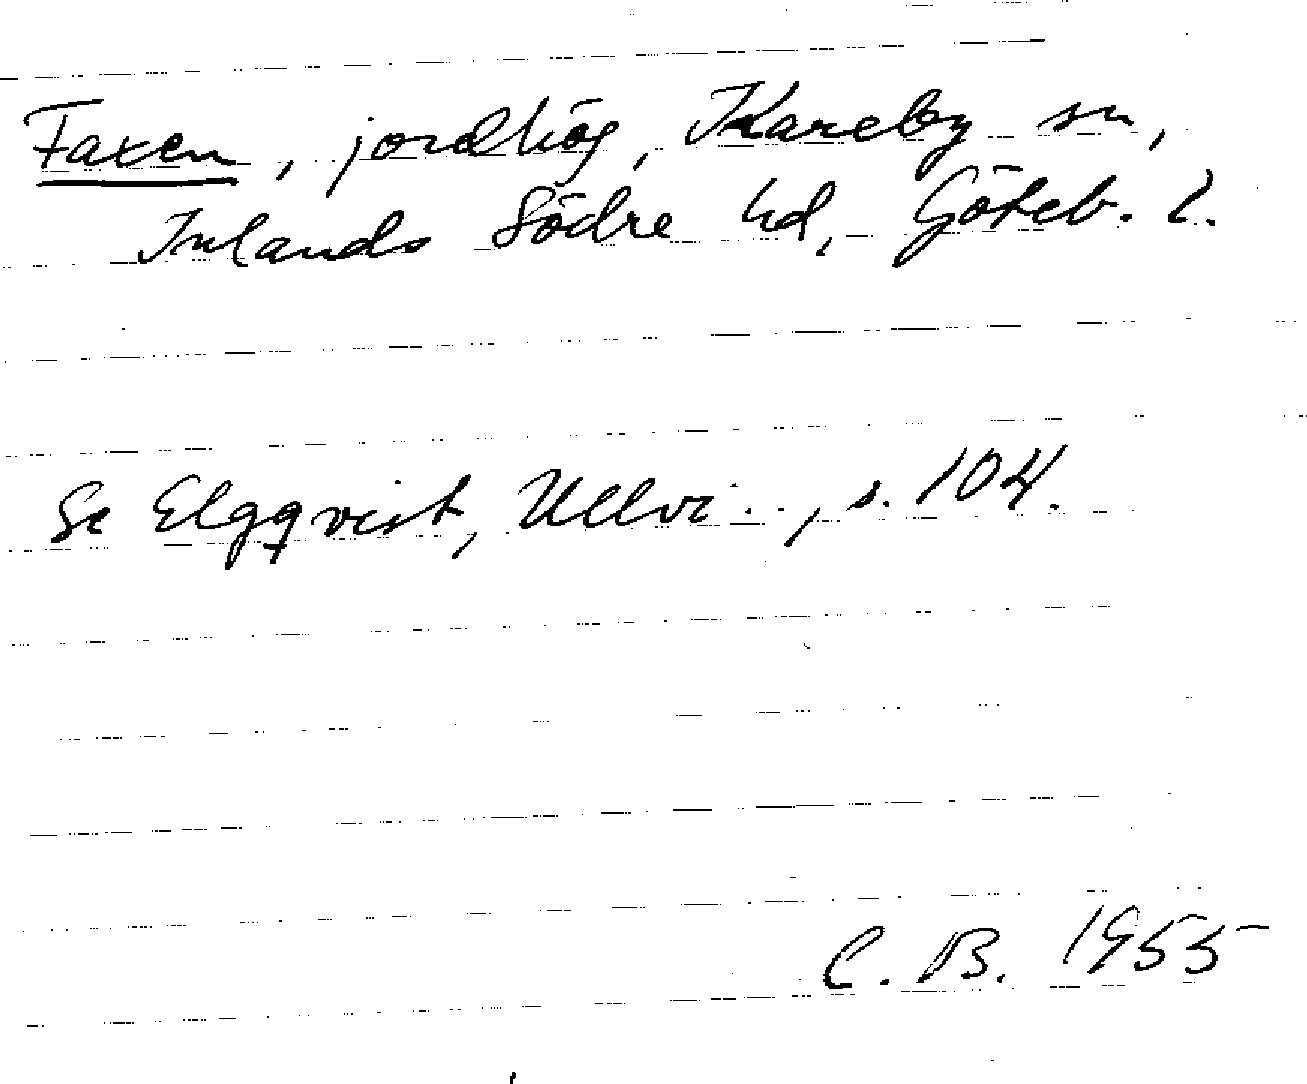 Faxen, jordhög, Kareby sn,
Inlands Södre hd, Göteb. l.
Se Elgqvist, Ullvi..., s. 104.
C. B. 1955